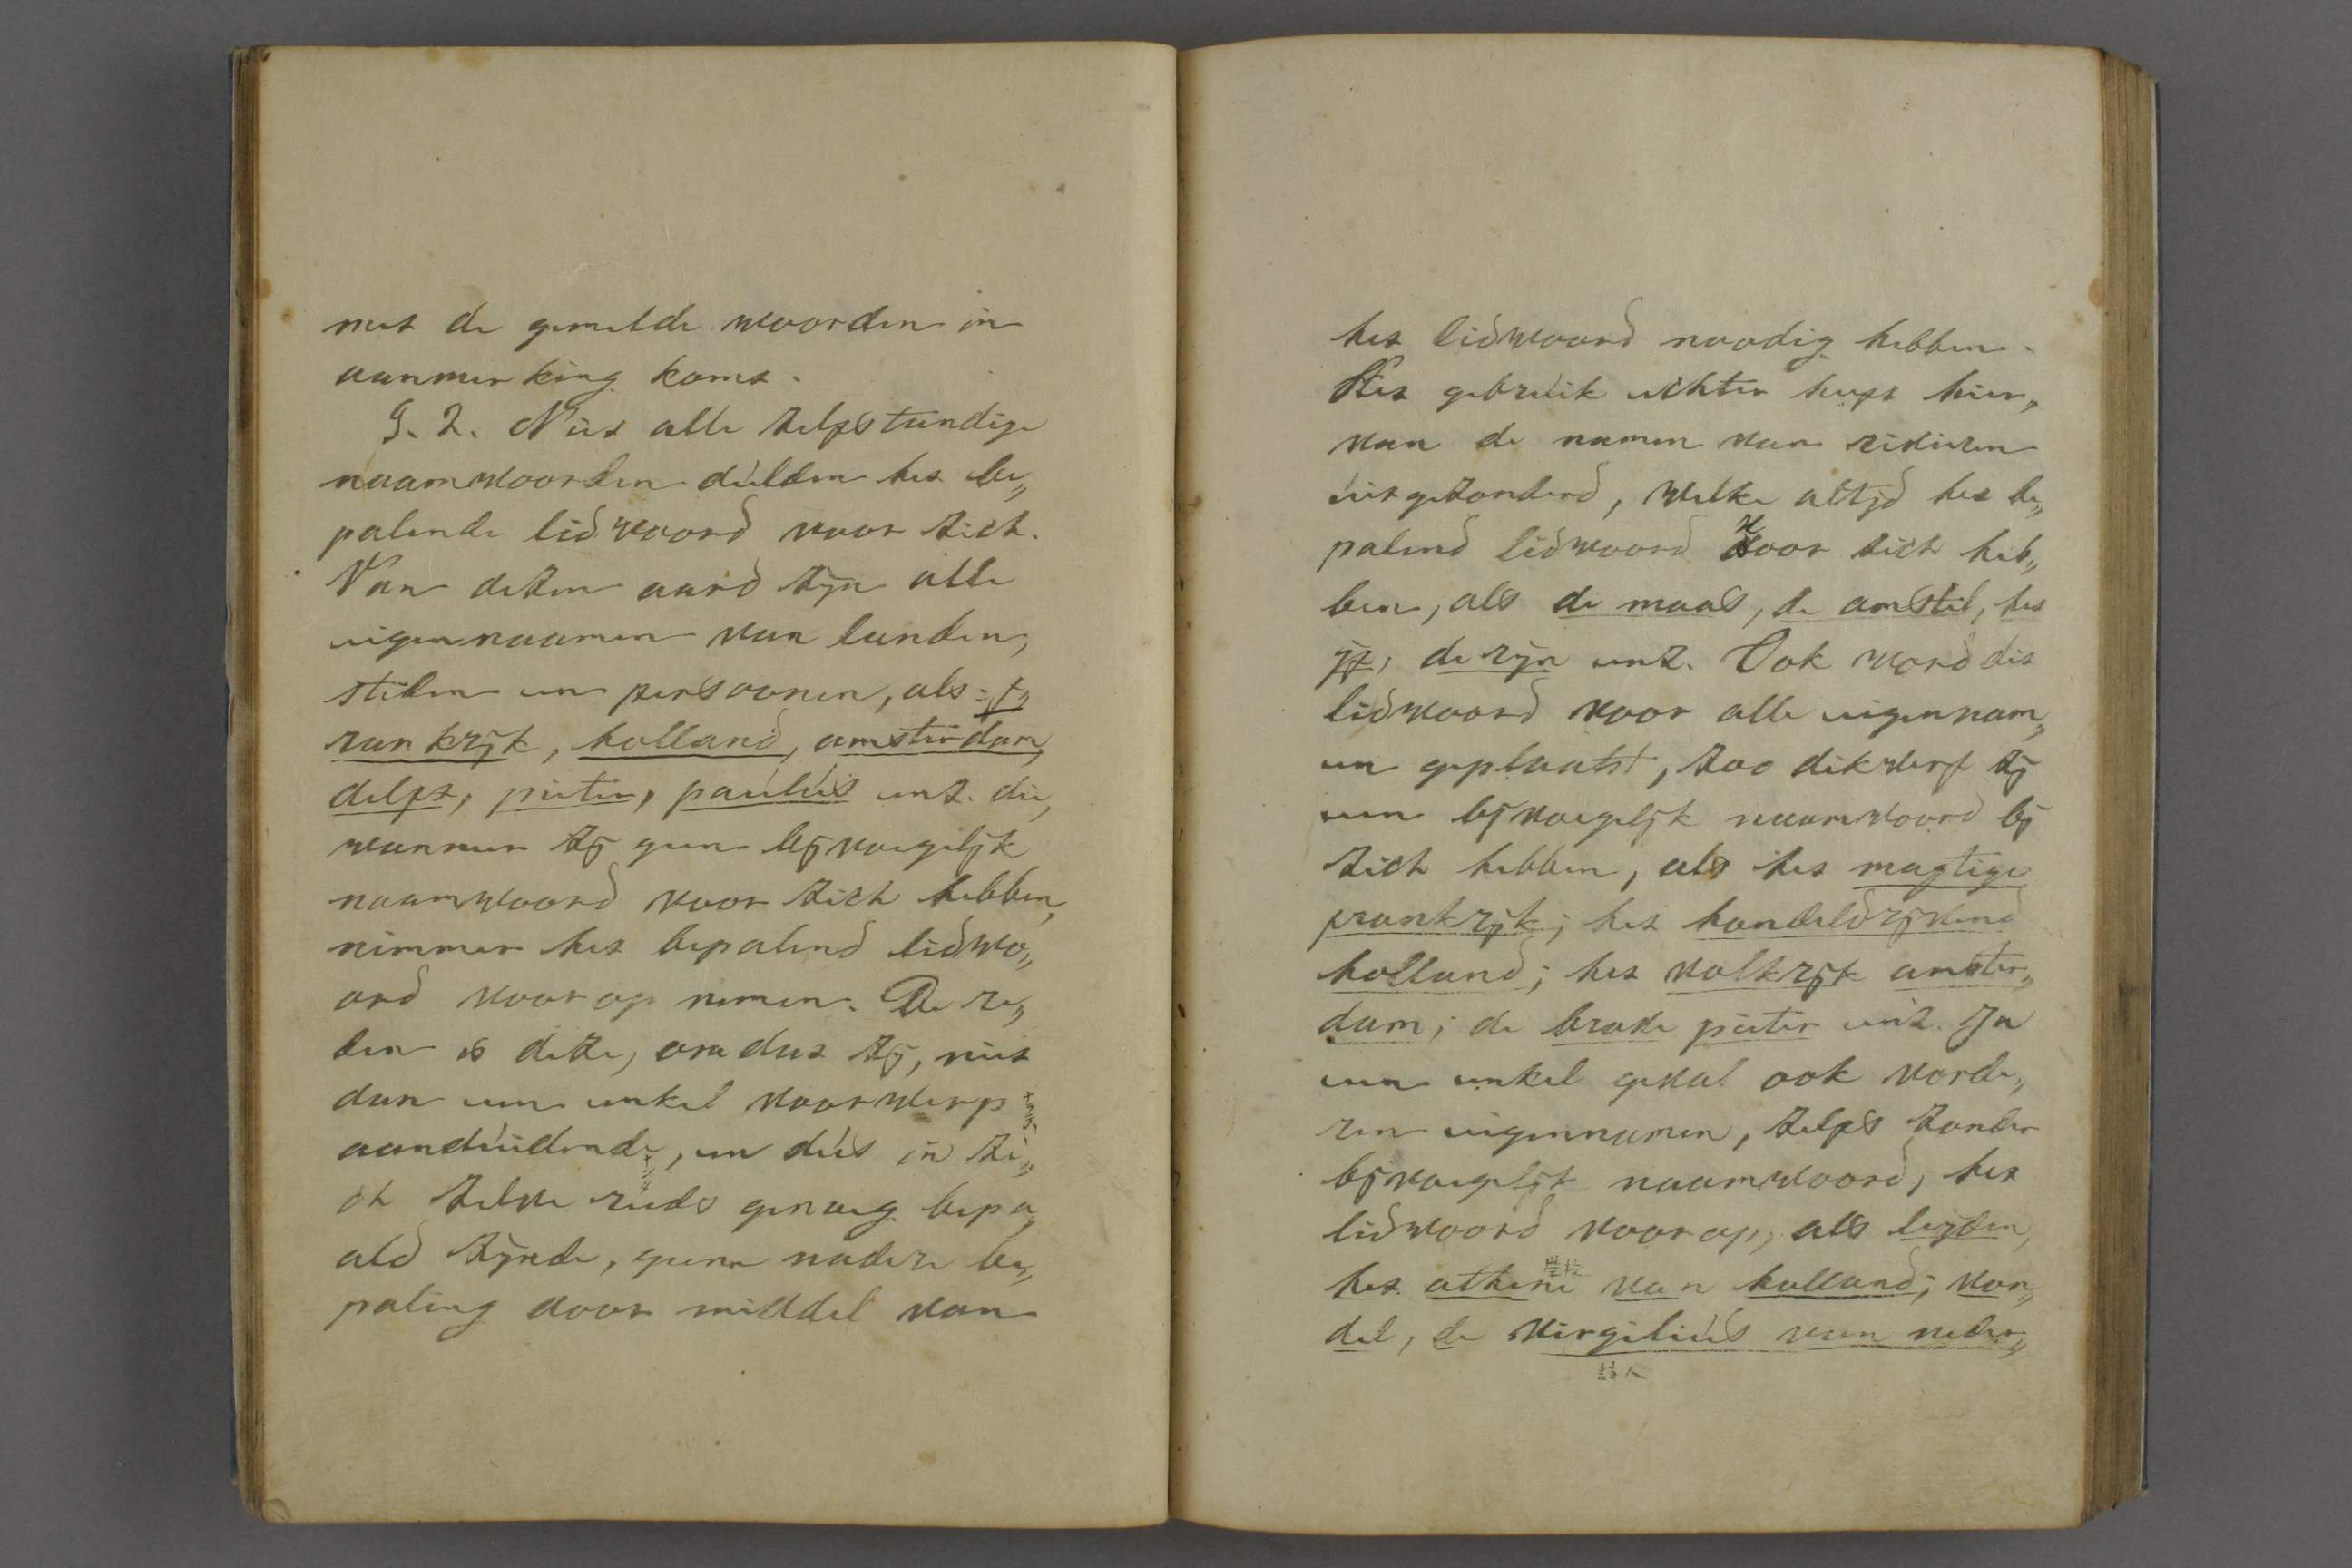 met de gemelde woorden in
aanmerking komt.
§. 2. Niet alle zelfstandige
naamwoorden dúlden het be„
palende lidwoord voor zich.
Van dezen aard zyn alle
eigennaamen van landen,
steden en persoonen, als: f„
rankrijk, holland, amsterdam,
delft, pieter, paúlús enz. die,
wanneer zij geen bijvoegelijk
naamwoord voor zich hebben,
nimmer het bepalend lidwo„
ord voorop nemen. De re„
den is deze, omdat zij, niet
dan een enkel voorwerp
aandúidende, en dús in zi„
ch zelve reeds genoeg bepa„
ald zijnde, geene nadere be„
paling door middel van
het lidwoord noodig hebben.
Het gebrúik echter heeft hier„
van de namen van rivieren
úitgezonderd, welke altijd het be„
palend lidwoord voor zich heb„
ben, als de maas, de amstel, het
ij, de rijn enz. Ook word dit
lidwoord voor alle eigennam„
en geplaatst, zoo dikwerf zij
een bijvoegelijk naamwoord bij
zich hebben, als het magtige
frankrijk; het handeldrijvend
holland; het volkrijk amster„
dam; de brave pieter enz. In
een enkel geval ook vorde„
ren eigennamen, zelfs zonder
bijvoegelijk naamwoord, het
lidwoord voorop, als leijden,
het athene van holland; von„
del, de virgiliús van neder„
詩人